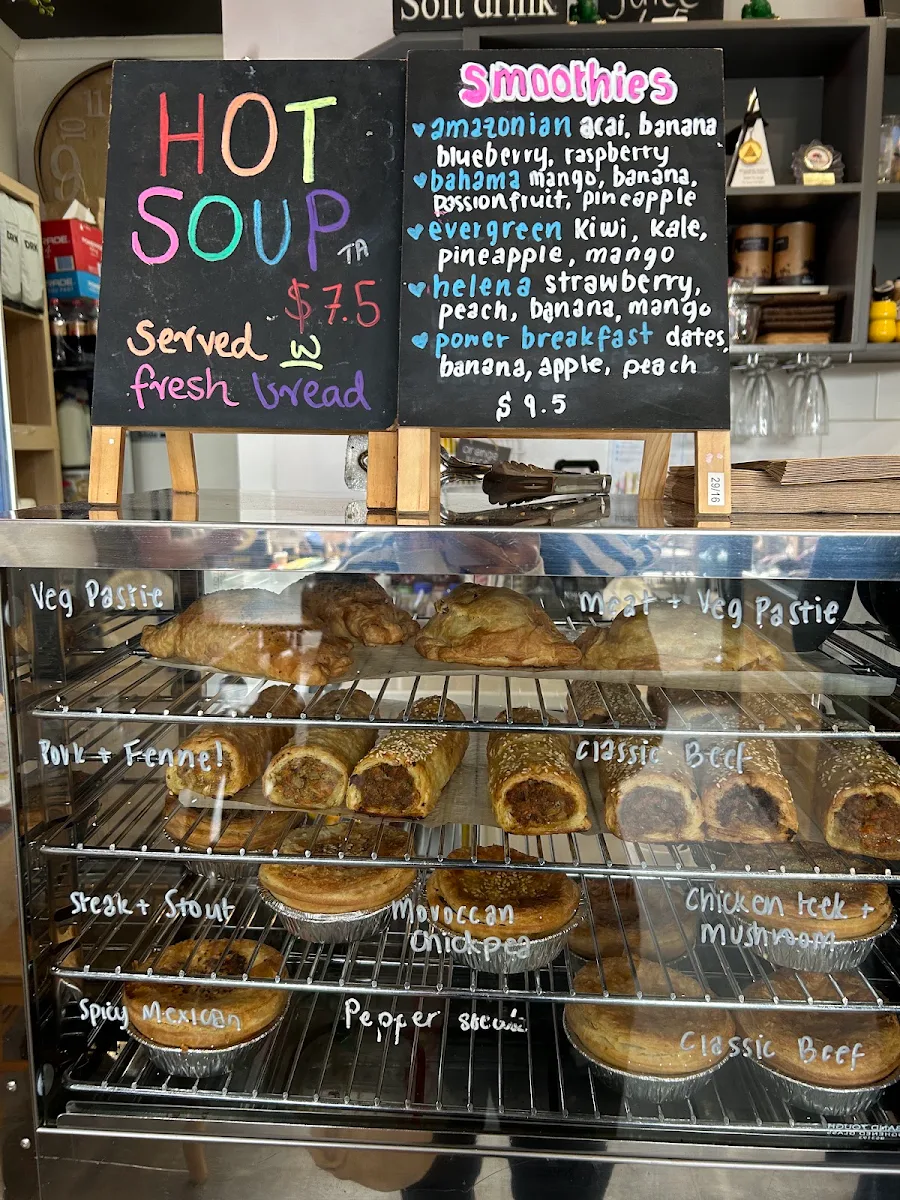 Soft drink
Juice
HOT
SOUP
TA
$7.5
Served w
fresh bread
Smoothies
♥amazonian acai, banana
blueberry, raspberry
♥bahama mango, banana,
passionfruit, pineapple
♥evergreen Kiwi, Kale,
pineapple, mango
♥helena strawberry,
peach, banana, mango
♥power breakfast dates,
banana, apple, peach
$9.5
29/16
Veg Pastie
Meat + Veg Pastie
Pork + Fennel
Classic Beef
Steak + Stout
Moroccan
Chickpea
Chicken Leek +
Mushroom
Spicy Mexican
Pepper steak
Classic Beef